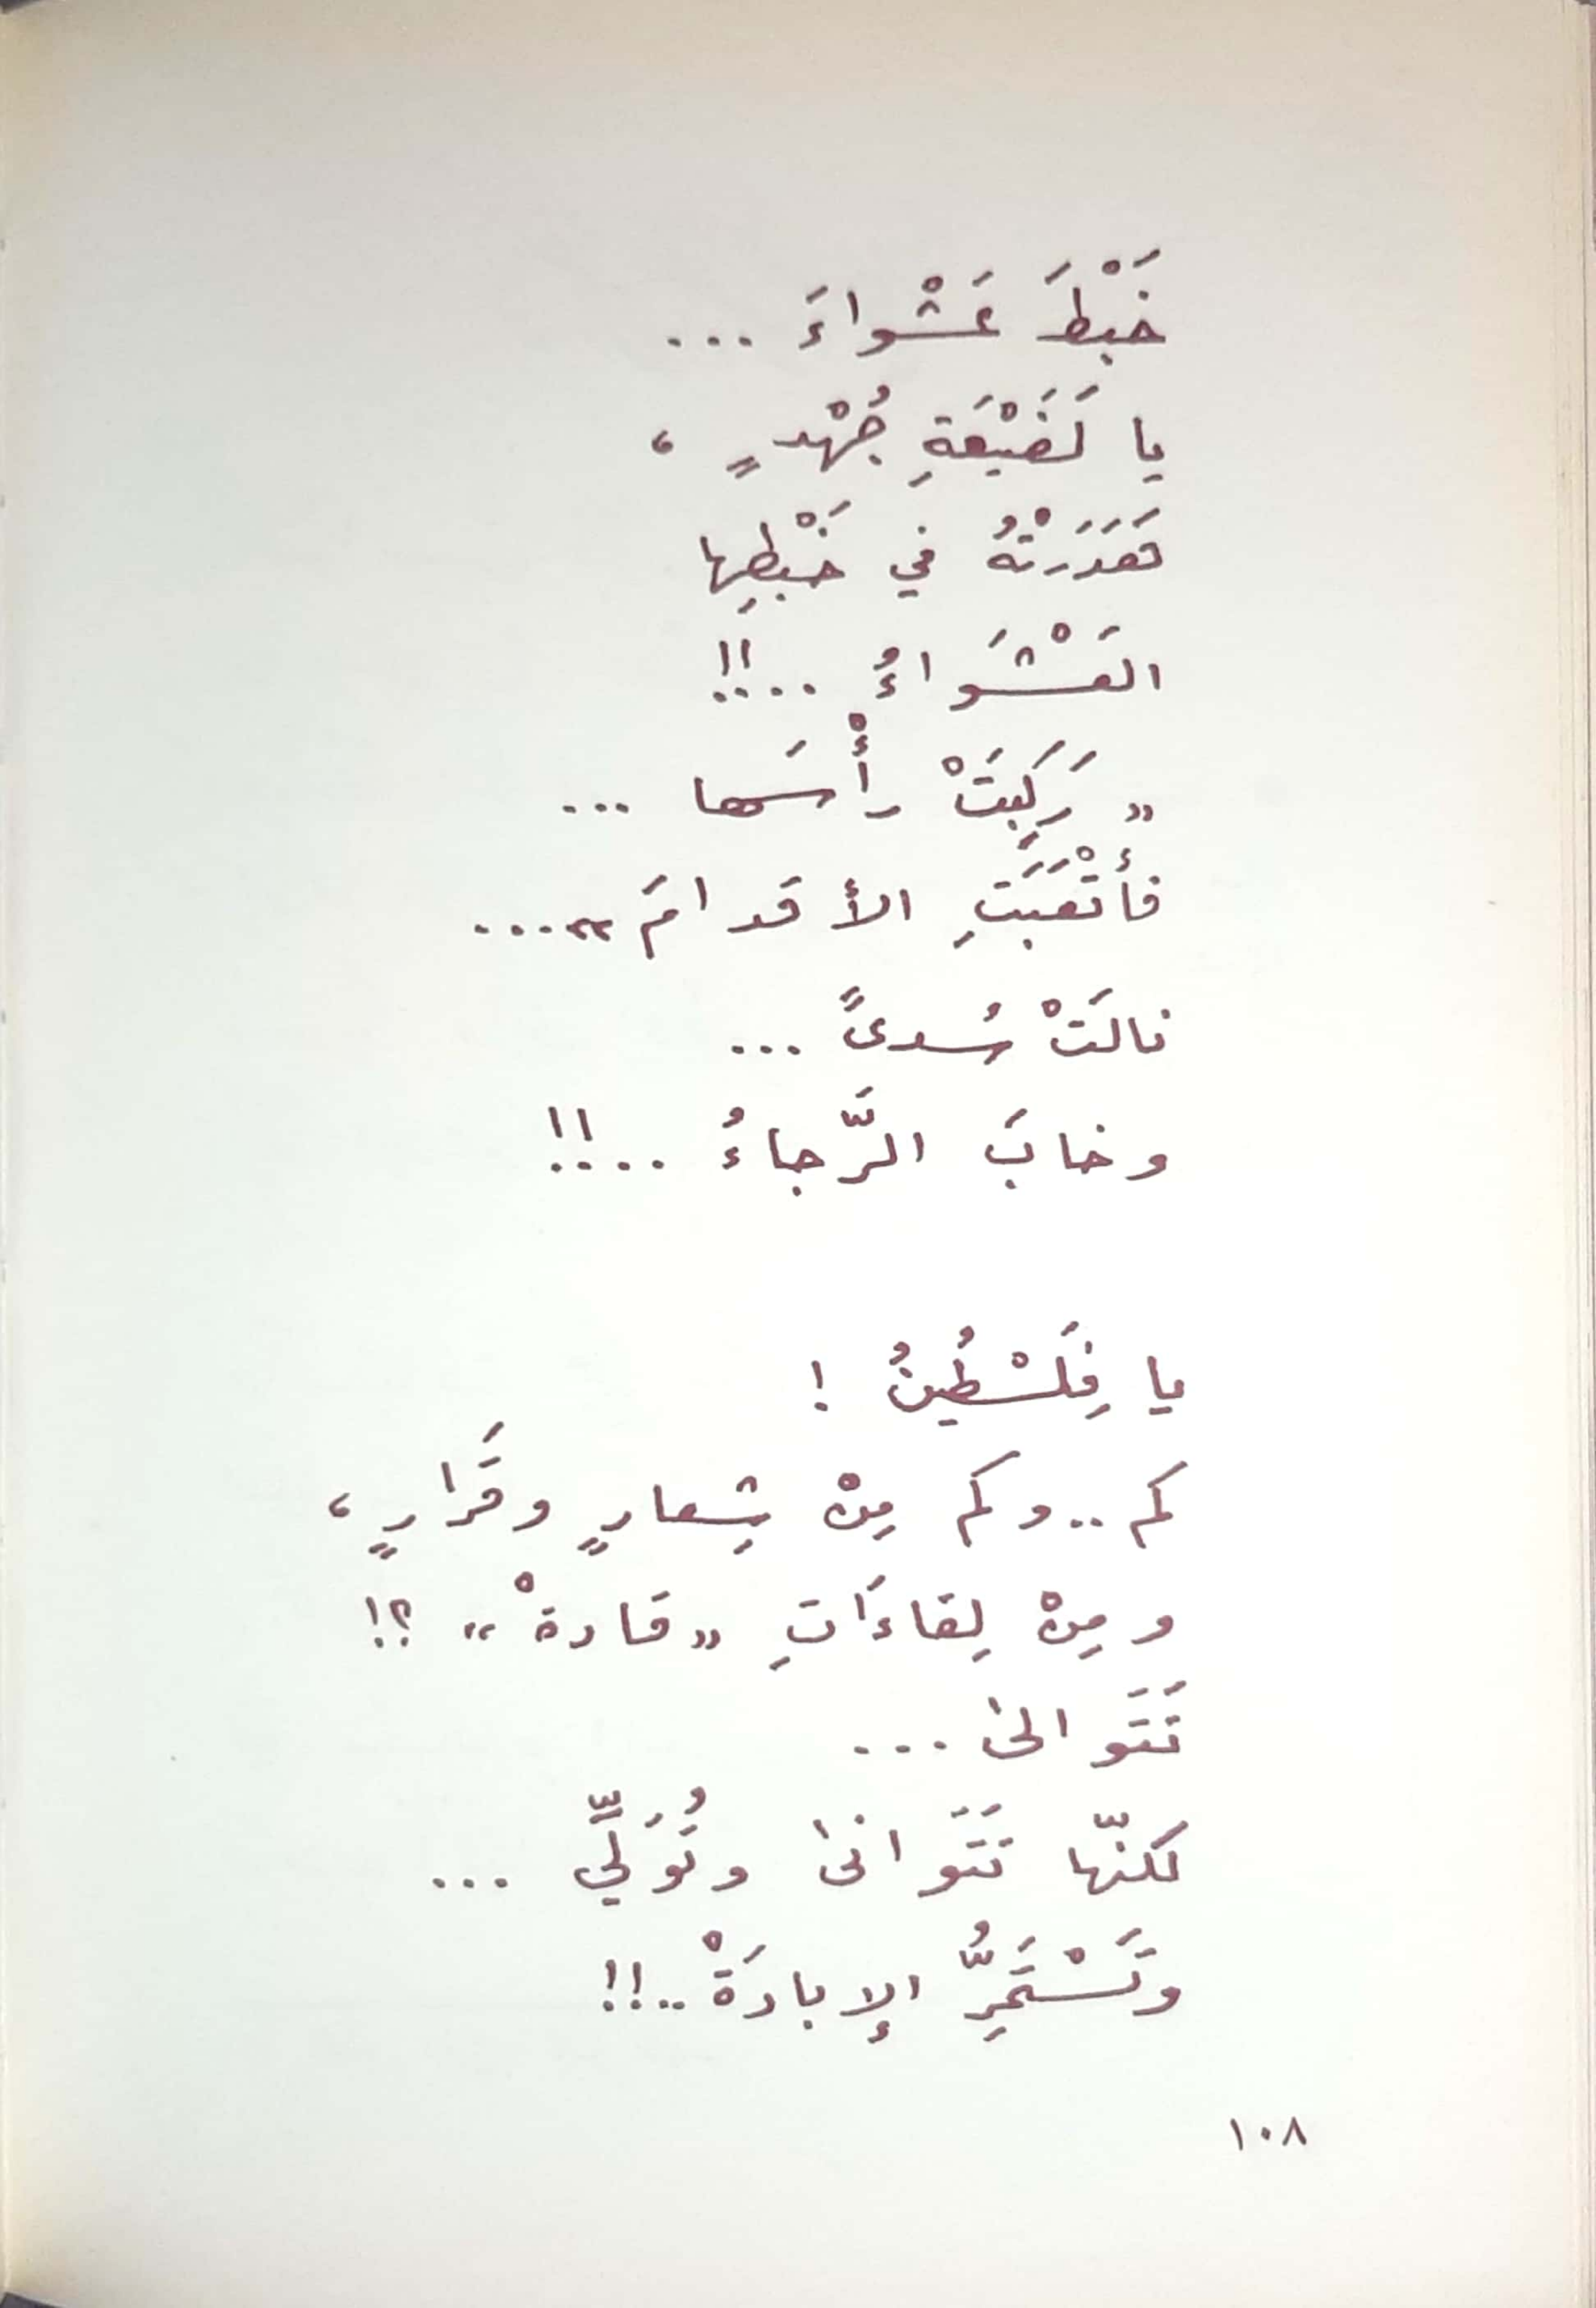 خَبْطَ عَشْواءَ ...
يا لَضَيْعَةِ جُهْدٍ ،
هَدَرَتْهُ في خَبْطِها
العَشْوَاءُ ..!!
« رَكِبَتْ رأْسَها ...
فأتْعَبَتِ الأقدامَ» ...
نالَتْ سُدىً ...
وخابَ الرَّجاءُ ..!!
يا فِلَسْطِينُ !
كم .. وكم مِنْ شِعارٍ وقَرارٍ ،
ومِنْ لِقاءَاتِ «قادةْ» ؟!
تَتَوالىٰ ...
لكنّها تَتَوانىٰ وتُوَلِّي ...
وتَسْتَمِرُّ الإبادَةْ ..!!
١٠٨